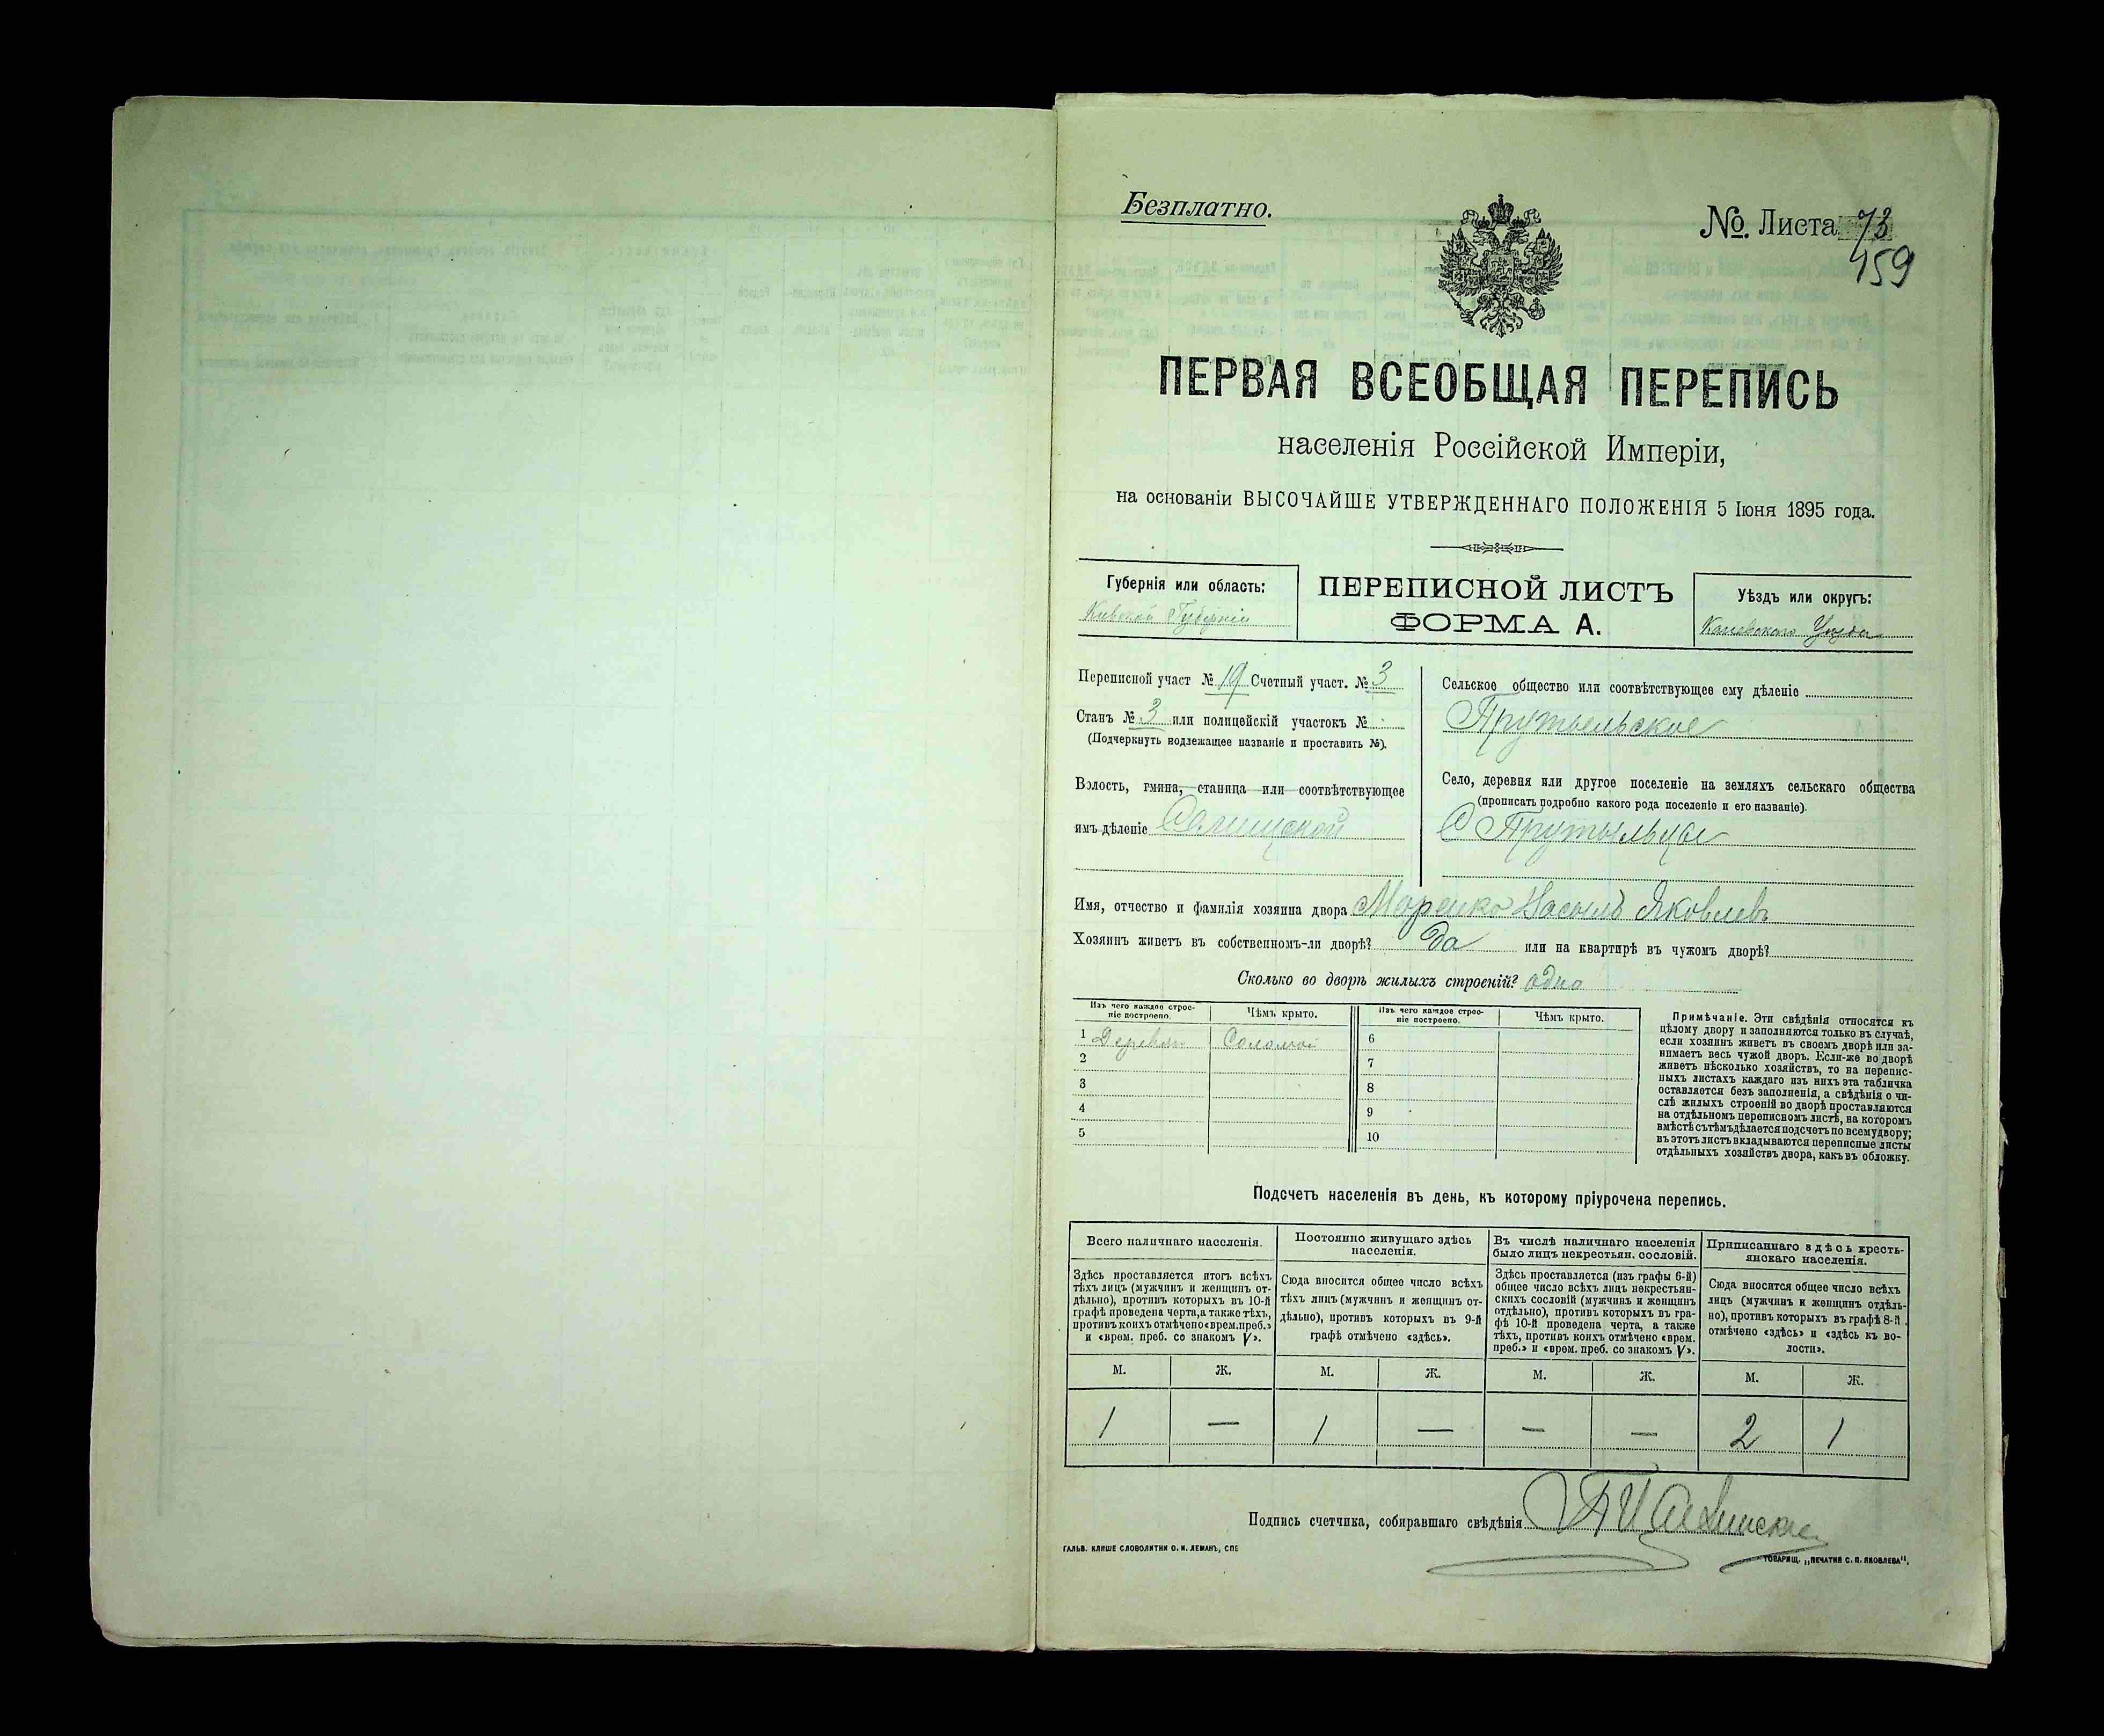 Безплатно.
№ Листа 73
459
ПЕРВАЯ ВСЕОБЩАЯ ПЕРЕПИСЬ
населенія Россійской Имперіи,
на основаніи ВЫСОЧАЙШЕ УТВЕРЖДЕННАГО ПОЛОЖЕНІЯ 5 Іюня 1895 года.
Губернія или область:
Кивской Губерніи
ПЕРЕПИСНОЙ ЛИСТЪ
ФОРМА А.
Уѣздъ или округъ:
Каневскаго Уѣзда
Переписной участ № 19 Счетный участ. № 3
Станъ № 3 или полицейскій участокъ №
(Подчеркнуть подлежащее названіе и проставить №).
Волость, гмина, станица или соотвѣтствующее
имъ дѣленіе
Сельское общество или соотвѣтствующее ему дѣленіе
Прутыльское
Село, деревня или другое поселеніе на земляхъ сельскаго общества
(прописать подробно какого рода поселеніе и его названіе).
С Прутыльцы
Имя, отчество и фамилія хозяина двора Маренко Василь Яковлевъ
Хозяинъ живетъ въ собственномъ-ли дворѣ? Да или на квартирѣ въ чужомъ дворѣ?
Сколько во дворѣ жилыхъ строеній? одно
Изъ чего каждое строе-
ніе построено.
Чѣмъ крыто.
Изъ чего каждое строе-
ніе построено.
Чѣмъ крыто.
1 Деревян Соломой
2
3
4
5
6
7
8
9
10
Примѣчаніе. Эти свѣдѣнія относятся къ
цѣлому двору и заполняются только въ случаѣ,
если хозяинъ живетъ въ своемъ дворѣ или за-
нимаетъ весь чужой дворъ. Если-же во дворѣ
живетъ нѣсколько хозяйствъ, то на перепис-
ныхъ листахъ каждаго изъ нихъ эта табличка
оставляется безъ заполненія, а свѣдѣнія о чи-
слѣ жилыхъ строеній во дворѣ проставляются
на отдѣльномъ переписномъ листѣ, на которомъ
вмѣстѣ съ тѣмъ дѣлается подсчетъ по всему двору;
въ этотъ листъ вкладываются переписные листы
отдѣльныхъ хозяйствъ двора, какъ въ обложку.
Подсчетъ населенія въ день, къ которому пріурочена перепись.
Всего наличнаго населенія.
Здѣсь проставляется итогъ всѣхъ
тѣхъ лицъ (мужчинъ и женщинъ от-
дѣльно), противъ которыхъ въ 10-й
графѣ проведена черта, а также тѣхъ,
противъ коихъ отмѣчено «врем. преб.»
и «врем. преб. со знакомъ V».
Постоянно живущаго здѣсь
населенія.
Сюда вносится общее число всѣхъ
тѣхъ лицъ (мужчинъ и женщинъ от-
дѣльно), противъ которыхъ въ 9-й
графѣ отмѣчено «здѣсь».
Въ числѣ наличнаго населенія
было лицъ некрестьян. сословій.
Здѣсь проставляется (изъ графы 6-й)
общее число всѣхъ лицъ некрестьян-
скихъ сословій (мужчинъ и женщинъ
отдѣльно), противъ которыхъ въ гра-
фѣ 10-й проведена черта, а также
тѣхъ, противъ коихъ отмѣчено «врем.
преб.» и «врем. преб. со знакомъ V».
Приписаннаго здѣсь кресть-
янскаго населенія.
Сюда вносится общее число всѣхъ
лицъ (мужчинъ и женщинъ отдѣль-
но), противъ которыхъ въ графѣ 8-й
отмѣчено «здѣсь» и «здѣсь къ во-
лости».
М. Ж. М. Ж. М. Ж. М. Ж.
1 — 1 — — — 2 1
Подпись счетчика, собиравшаго свѣдѣнія
ГАЛЬВ. КЛИШЕ СЛОВОЛИТНИ О. И. ЛЕМАНЪ, СПБ
ТОВАРИЩ. „ПЕЧАТНЯ С. П. ЯКОВЛЕВА".